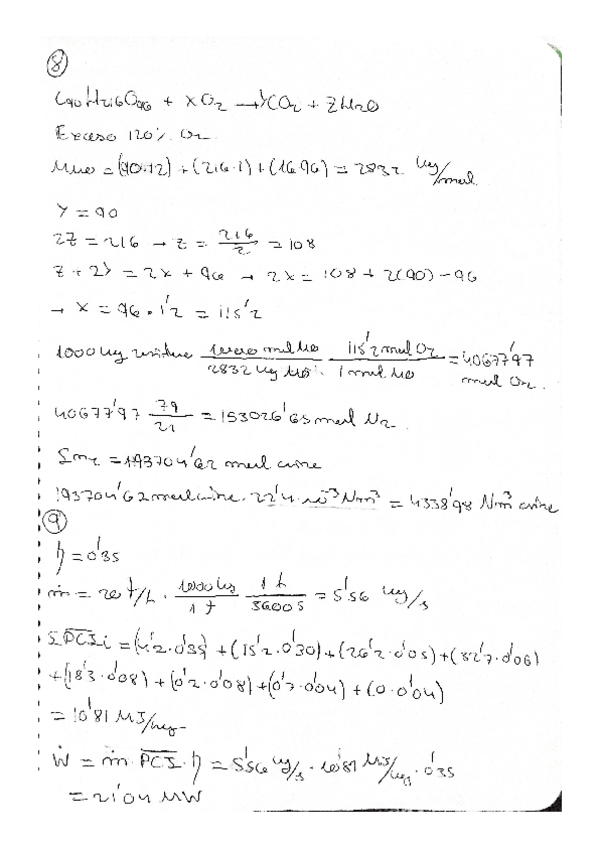 8
C90H216O96 + xO2 → YCO2 + ZH2O
Exceso 120% O2
= (90·12) + (216·1) + (16·96) = 2832 kg/kmol
Y = 90
2Z = 216 → Z = 216/2 = 108
Z + 2Y = 2x + 96 → 2x = 108 + 2(90) - 96
→ x = 96 · 1'2 = 115'2
1000 kg residuo 1000 mol MO / 2832 kg MO 115'2 mol O2 / 1 mol MO = 40677'97 mol O2.
40677'97 79/21 = 153026'65 mol N2
= 193704'62 mol aire
193704'62 mol aire · 22'4·10^-3 Nm³ = 4338'98 Nm³ aire
9
η = 0'35
ṁ = 20 t/h · 1000 kg / 1 t 1 h / 3600 s = 5'56 kg/s
Σ PCIi = (4'2·0'35) + (15'2·0'30) + (26'2·0'05) + (32'7·0'06)
+ (18'3·0'08) + (0'2·0'08) + (0'7·0'04) + (0·0'04)
= 10'81 MJ/kg
Ẇ = ṁ · PCI · η = 5'56 kg/s · 10'81 MJ/kg · 0'35
= 21'04 MW